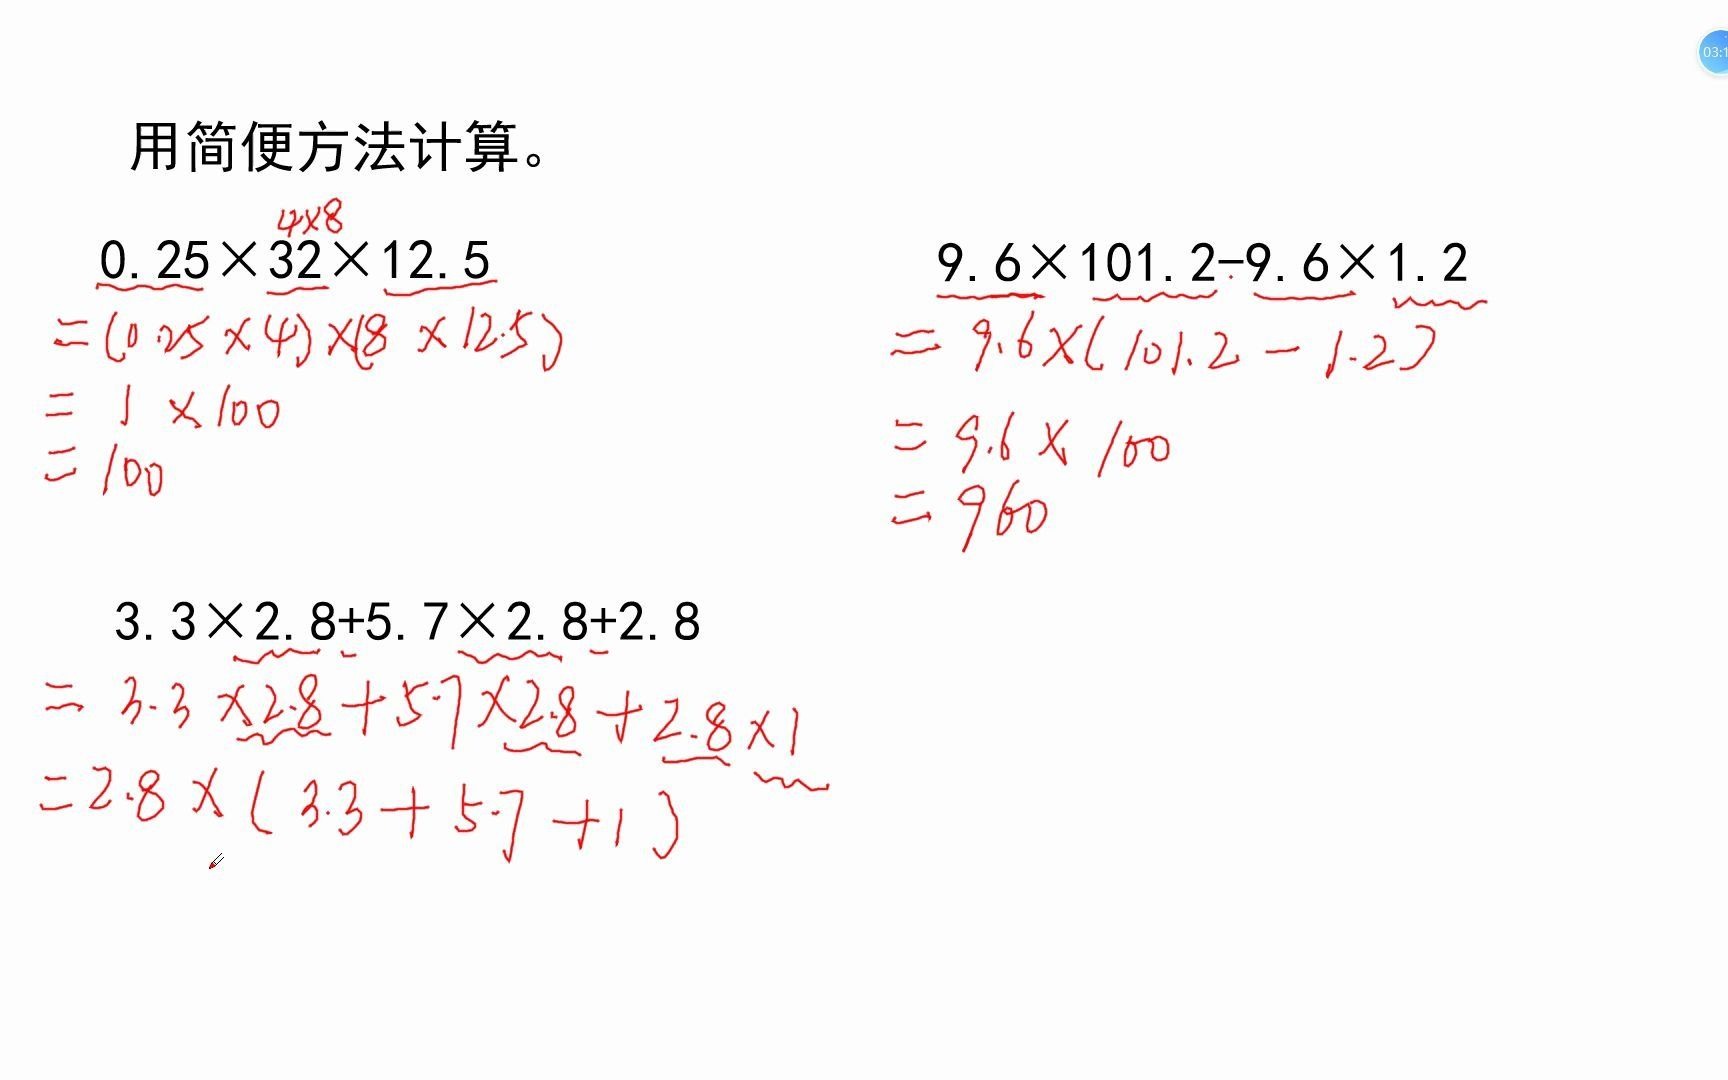 03:1
用简便方法计算。
4×8
0.25×32×12.5
=(0.25×4)×(8×12.5)
=1×100
=100
9.6×101.2-9.6×1.2
=9.6×(101.2-1.2)
=9.6×100
=960
3.3×2.8+5.7×2.8+2.8
=3.3×2.8+5.7×2.8+2.8×1
=2.8×(3.3+5.7+1)